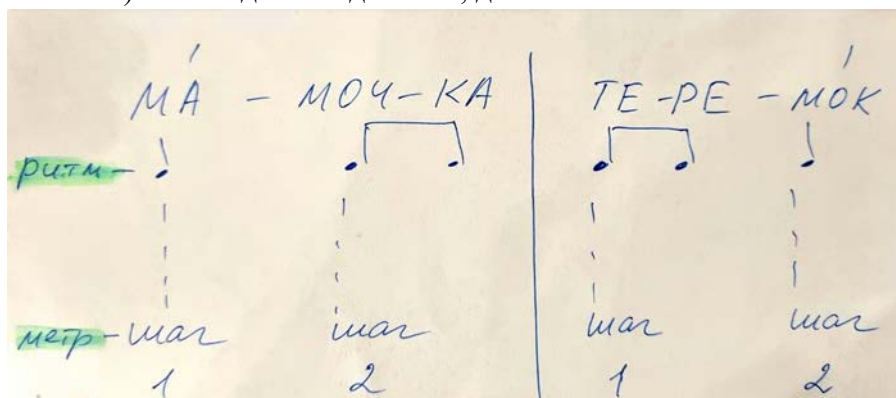 МА́ - МОЧ-КА ТЕ-РЕ-МО́К
ритм-
метр-шаг шаг шаг шаг
1 2 1 2